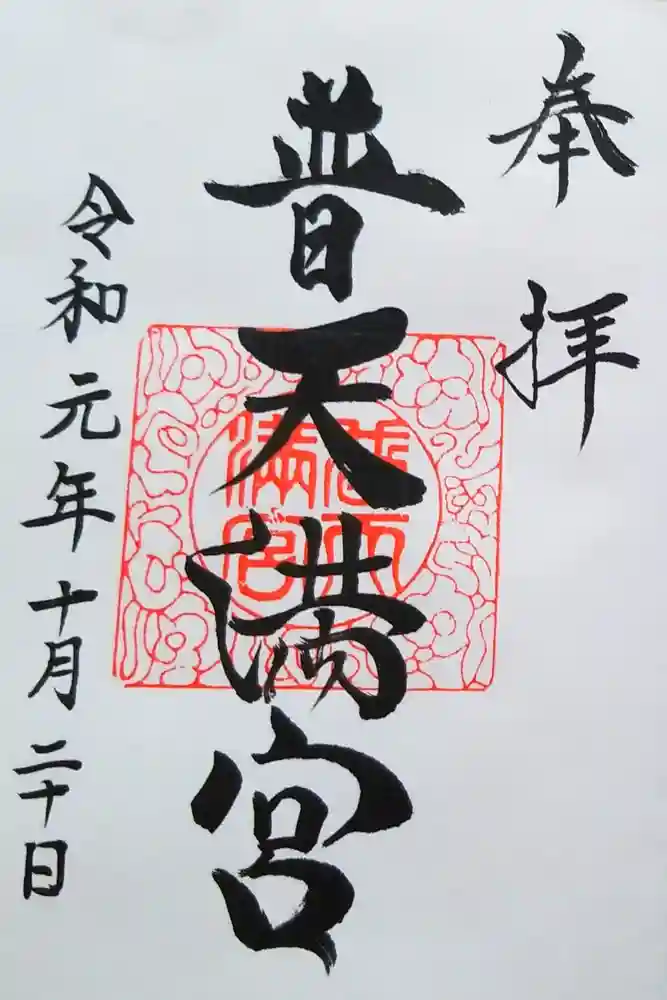 奉拝
普天満宮
満宮
令和元年十月二十日